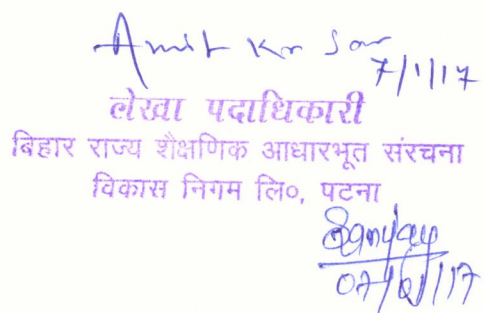 Amit Kr
7/1/17
लेखा पदाधिकारी
बिहार राज्य शैक्षणिक आधारभूत संरचना
विकास निगम लि०, पटना
Sanjay